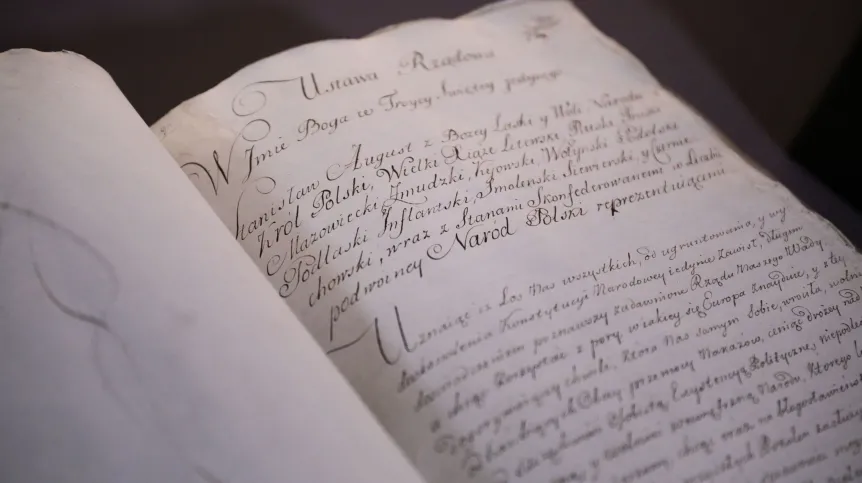 Ustawa Rządowa
W Imie Boga w Troycy Swiętey jedynego.
Stanisław August z Bożey Łaski y Woli Narodu
Król Polski, Wielki Xiąże Litewski, Ruski, Pruski
Mazowiecki, Zmudzki, Kijowski, Wołynski, Podolski
Podlaski, Inflantski, Smolenski, Siewierski, y Czernie
chowski, wraz z Stanami Skonfederowanemi w Liczbie
podwoyney Naród Polski reprezentuiącemi
Uznaiąc iż Los Nas wszystkich, od ugruntowania, y wy
doskonalenia Konstytucyi Narodowey iedynie zawisł, długiem
doswiadczeniem poznawszy zadawnione Rządu Naszego Wady
a chcąc korzystać z pory, w iakiey się Europa znayduie, y z tey
dogorywaiącey chwili, ktora Nas samym sobie wrociła, wolni
od hanbiących Obcey przemocy Nakazow, ceniąc drożey nad
Exystencyą Polityczną, niepodle
Narodu, ktorego